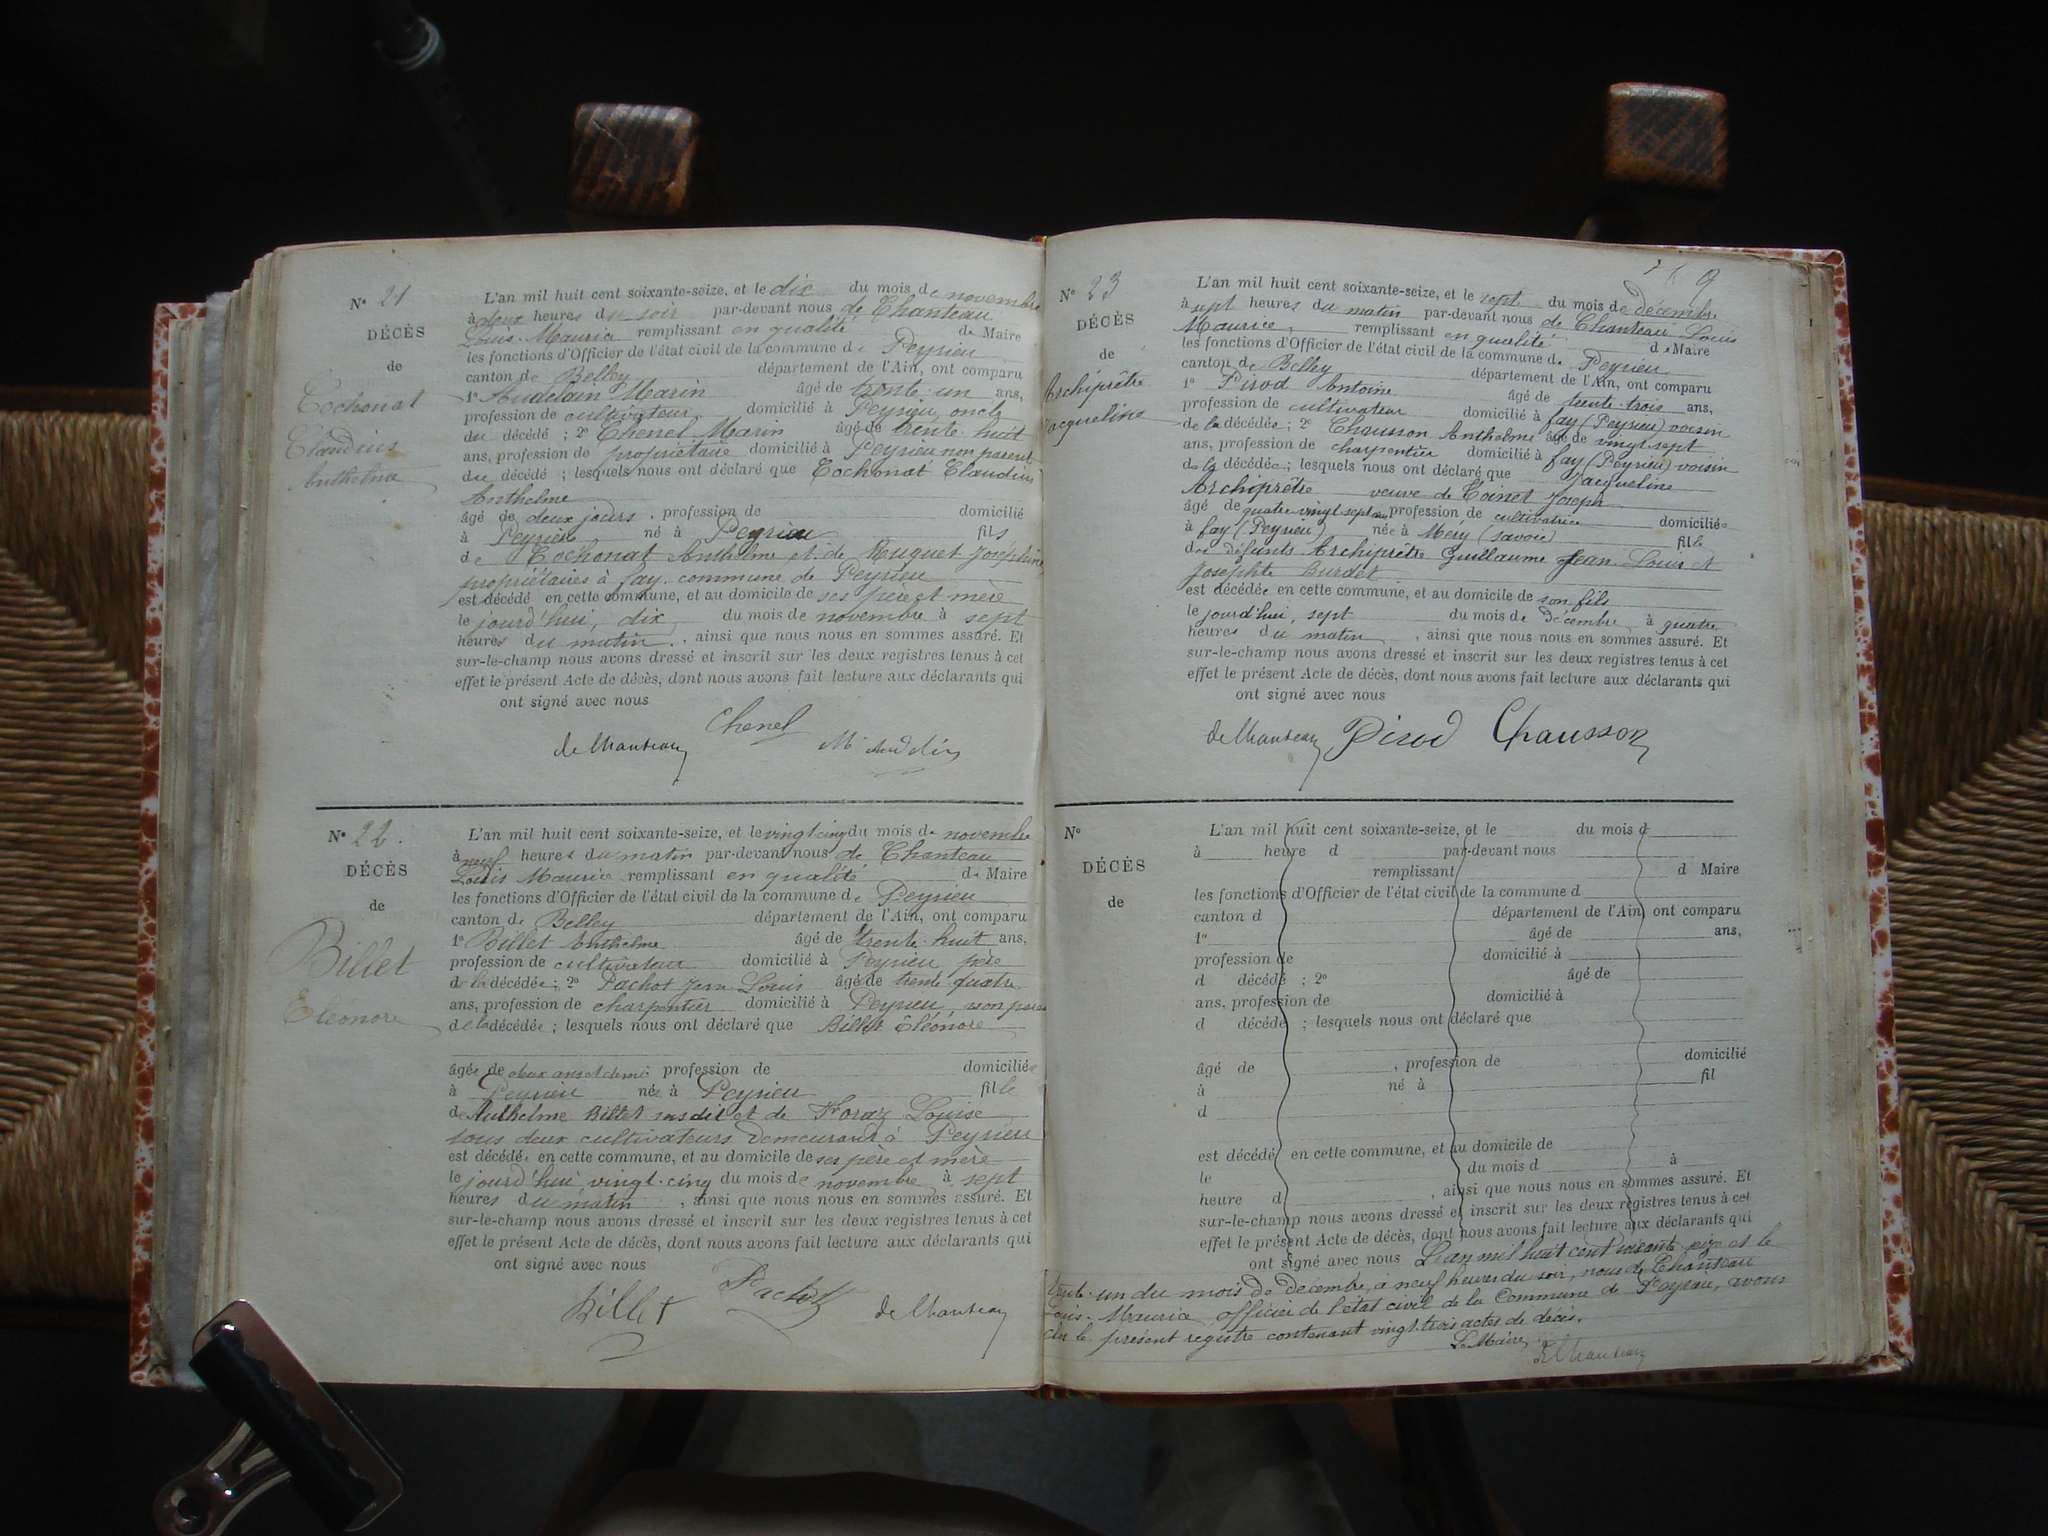 N° 21
DÉCÈS
de
Cochonat
Claudius
Anthelme
L'an mil huit cent soixante-seize, et le dix du mois de novembre
à deux heures du soir par-devant nous de Chanteau
Louis Maurice remplissant en qualité de Maire
les fonctions d'Officier de l'état civil de la commune de Peyrieu
canton de Belley département de l'Ain, ont comparu
1° Audelain Marin âgé de trente-un ans,
profession de cultivateur domicilié à Peyrieu, oncle
du décédé ; 2° Chenel Marin âgé de trente-huit
ans, profession de propriétaire domicilié à Peyrieu non parent
du décédé ; lesquels nous ont déclaré que Cochonat Claudius
Anthelme
âgé de deux jours, profession de domicilié
à Peyrieu né à Peyrieu fils
de Cochonat Anthelme et de Muguet Joséphine
propriétaires à fay, commune de Peyrieu
est décédé en cette commune, et au domicile de ses père et mère
le jourd'hui, dix du mois de novembre à sept
heures du matin, ainsi que nous nous en sommes assuré. Et
sur-le-champ nous avons dressé et inscrit sur les deux registres tenus à cet
effet le présent Acte de décès, dont nous avons fait lecture aux déclarants qui
ont signé avec nous
Chenel
de Chanteau
N° 22.
DÉCÈS
de
Billet
Eléonore
L'an mil huit cent soixante-seize, et le vingt cinq du mois de novembre
à neuf heures du matin par-devant nous de Chanteau
Louis Maurice remplissant en qualité de Maire
les fonctions d'Officier de l'état civil de la commune de Peyrieu
canton de Belley département de l'Ain, ont comparu
1° Billet Anthelme âgé de trente-huit ans,
profession de cultivateur domicilié à Peyrieu père
de la décédée ; 2° Pachot Jean Louis âgé de trente quatre
ans, profession de charpentier domicilié à Peyrieu, non parent
de la décédée ; lesquels nous ont déclaré que Billet Éléonore
âgée de deux ans et demi profession de domiciliée
à Peyrieu née à Peyrieu fille
de Anthelme Billet susdit et de Foraz Louise
tous deux cultivateurs demeurant à Peyrieu
est décédée en cette commune, et au domicile de ses père et mère
le jourd'hui vingt-cinq du mois de novembre à sept
heures du matin, ainsi que nous nous en sommes assuré. Et
sur-le-champ nous avons dressé et inscrit sur les deux registres tenus à cet
effet le présent Acte de décès, dont nous avons fait lecture aux déclarants qui
ont signé avec nous
Billet Pachot de Chanteau
9
N° 23
DÉCÈS
de
Archiprêtre
Jacqueline
L'an mil huit cent soixante-seize, et le sept du mois de décembre
à sept heures du matin par-devant nous de Chanteau Louis
Maurice, remplissant en qualité de Maire
les fonctions d'Officier de l'état civil de la commune de Peyrieu
canton de Belley département de l'Ain, ont comparu
1° Pirod Antoine âgé de trente-trois ans,
profession de cultivateur domicilié à fay (Peyrieu) voisin
de la décédée ; 2° Chausson Anthelme âgé de vingt sept
ans, profession de charpentier domicilié à fay (Peyrieu) voisin
de la décédée ; lesquels nous ont déclaré que Jacqueline
Archiprêtre veuve de Coinet Joseph
âgée de quatre-vingt sept ans profession de cultivatrice domiciliée
à fay (Peyrieu) née à Méry (Savoie) fille
des défunts Archiprêtre Guillaume Jean-Louis et
Josephte Burdet
est décédée en cette commune, et au domicile de son fils
le jourd'hui, sept du mois de décembre à quatre
heures du matin, ainsi que nous nous en sommes assuré. Et
sur-le-champ nous avons dressé et inscrit sur les deux registres tenus à cet
effet le présent Acte de décès, dont nous avons fait lecture aux déclarants qui
ont signé avec nous
de Chanteau Pirod Chausson
N°
DÉCÈS
de
L'an mil huit cent soixante-seize, et le du mois d
à heure d par-devant nous
remplissant d Maire
les fonctions d'Officier de l'état civil de la commune d
canton d département de l'Ain, ont comparu
1° âgé de ans,
profession de domicilié à
d décédé ; 2° âgé de
ans, profession de domicilié à
d décédé ; lesquels nous ont déclaré que
âgé de , profession de domicilié
à né à fil
d
est décédé en cette commune, et au domicile de
le du mois d à
heure d , ainsi que nous nous en sommes assuré. Et
sur-le-champ nous avons dressé et inscrit sur les deux registres tenus à cet
effet le présent Acte de décès, dont nous avons fait lecture aux déclarants qui
ont signé avec nous L'an mil huit cent soixante seize et le
trente-un du mois de décembre, à neuf heures du soir, nous de Chanteau
Louis-Maurice officier de l'état civil de la Commune de Peyrieu, avons
clos le présent registre contenant vingt-trois actes de décès.
Le Maire
de Chanteau